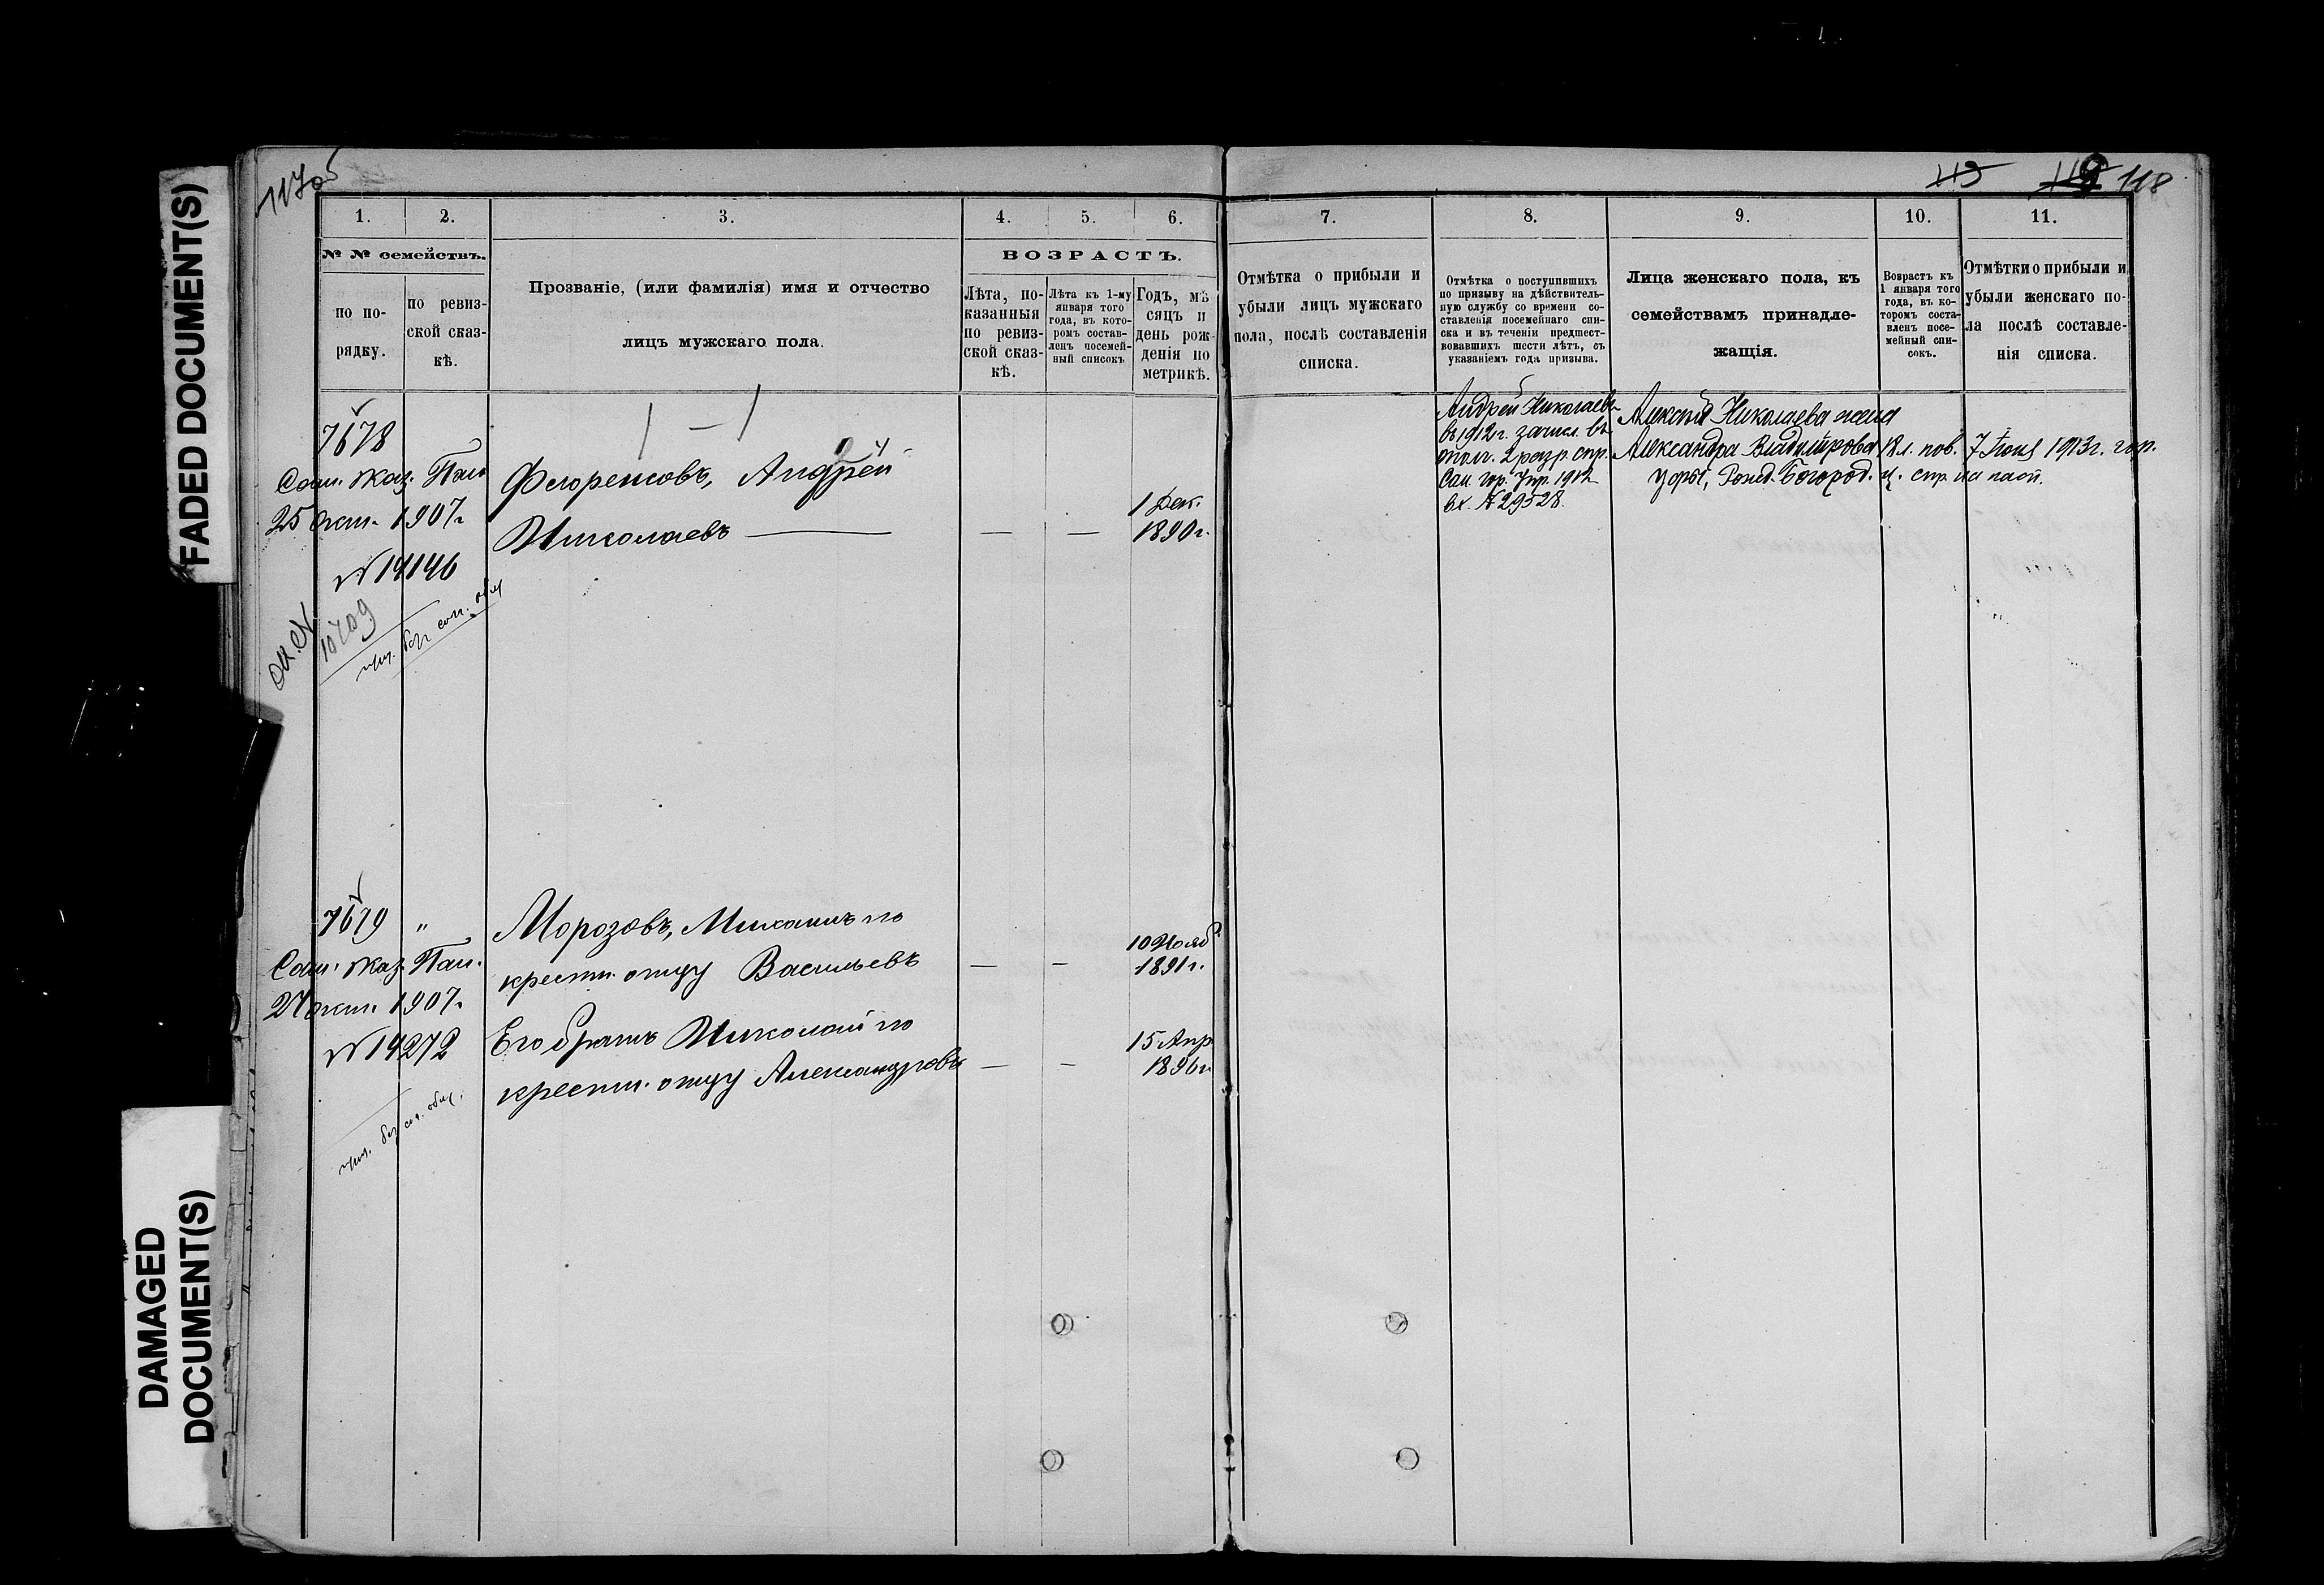 FADED DOCUMENT(S)
DAMAGED
DOCUMENT(S)
117об
115 118
1. 2. 3. 4. 5. 6. 7. 8. 9. 10. 11.
№ № семействъ.
по по-
рядку.
по ревиз-
ской сказ-
кѣ.
Прозваніе, (или фамилія) имя и отчество
лицъ мужскаго пола.
ВОЗРАСТЪ.
Лѣта, по-
казанныя
по ревиз-
ской сказ-
кѣ.
Лѣта къ 1-му
января того
года, въ кото-
ромъ состав-
ленъ посемей-
ный списокъ
Годъ, мѣ
сяцъ и
день рож-
денія по
метрикѣ.
Отмѣтка о прибыли и
убыли лицъ мужскаго
пола, послѣ составленія
списка.
Отмѣтка о поступившихъ
по призыву на дѣйствитель-
ную службу со времени со-
ставленія посемейнаго спи-
ска и въ теченіи предшест-
вовавшихъ шести лѣтъ, съ
указаніемъ года призыва.
Лица женскаго пола, къ
семействамъ принадле-
жащія.
Возрастъ къ
1 января того
года, въ ко-
торомъ соста-
вленъ посе-
мейный спи-
сокъ.
Отмѣтки о прибыли и
убыли женскаго по-
ла послѣ составле-
нія списка.
7678
Сам. Каз. Пал.
25 окт. 1907г.
№ 14146
Андрей
Николаевъ
1 Дек.
1890г.
Андрей Николаевъ
въ 1912г. зачисл. въ
ополч. 2 разр. спр.
Сам. гор. Упр. 1912
вх. № 29528.
Николаева жена
Александра Владимірова 18 л. пов. 7 1913г. гор.
Уфы, Рожд. Богород. ц. спр. на пасп.
7679 "
Сам. Каз. Пал.
27 окт. 1907г.
№ 14272
Морозовъ, Михаилъ по
крестн. отцу Васильевъ
10 Нояб.
1891г.
Его братъ Николай по
крестн. отцу Александровъ
15 Апр.
1896г.